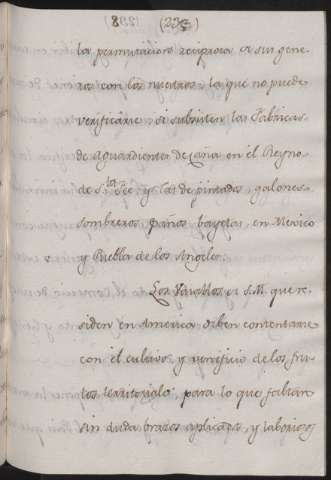 8 (293)
la permutacion reciproca de sus gene-
ros con los nuestros; la que no puede
verificarse, si subsisten las Fabricas
de Aguardientes de Caña en el Reyno
de S.ta Fee, y las de pintados, galones
sombreros, paños bayetas, en Mexico
y Puebla de los Angeles.
Los Vasallos de S.M. que re-
siden en America deben contentarse
con el cultivo, y beneficio de los fru-
tos territoriales, para lo que faltan
sin duda brazos aplicados, y laboriosos